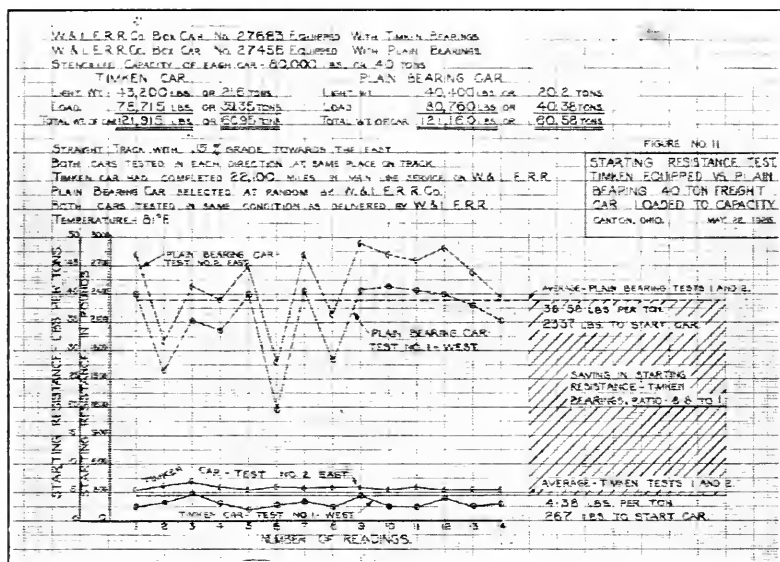 W. & L. E. R. R. Co. Box Car No. 27683 Equipped With Timken Bearings
W. & L. E. R. R. Co. Box Car No. 27456 Equipped With Plain Bearings
Stenciled Capacity of Each Car - 80,000 Lbs. or 40 Tons
TIMKEN CAR
Light Wt. 43,200 Lbs. or 21.6 Tons
Load 78,715 Lbs. or 39.35 Tons
Total Wt. of Car 121,915 Lbs. or 60.95 Tons
PLAIN BEARING CAR
Light Wt. 40,400 Lbs. or 20.2 Tons
Load 80,760 Lbs or 40.38 Tons
Total Wt. of Car 121,160 Lbs or 60.58 Tons
Straight Track With .15 % Grade Towards The East
Both Cars Tested In Each Direction At Same Place On Track
Timken Car Had Completed 22,100 Miles In Main Line Service On W. & L. E. R. R.
Plain Bearing Car Selected At Random By W. & L. E. R. R. Co.
Both Cars Tested In Same Condition As Delivered By W. & L. E. R. R.
Temperature - 81°F
FIGURE NO. 11
STARTING RESISTANCE TEST
TIMKEN EQUIPPED VS. PLAIN
BEARING 40 TON FREIGHT
CAR LOADED TO CAPACITY
CANTON, OHIO. MAY 22, 
STARTING RESISTANCE LBS PER TONS
STARTING RESISTANCE IN POUNDS
50 3000
45 2700
40 2400
35 2100
30 1800
25 1500
20 1200
15 900
10 600
5 300
0 0
PLAIN BEARING CAR-
TEST NO. 2. EAST
PLAIN BEARING CAR-
TEST NO. 1 - WEST
AVERAGE - PLAIN BEARING TESTS 1 AND 2.
38.58 LBS PER TON
2337 LBS. TO START CAR.
SAVING IN STARTING
RESISTANCE - TIMKEN
BEARINGS. RATIO - 8.8 TO 1.
TIMKEN CAR - TEST NO. 2 EAST
TIMKEN CAR - TEST NO. 1 - WEST
AVERAGE - TIMKEN TESTS 1 AND 2
4.38 LBS. PER TON
267 LBS TO START CAR.
1 2 3 4 5 6 7 8 9 10 11 12 13 14
NUMBER OF READINGS.